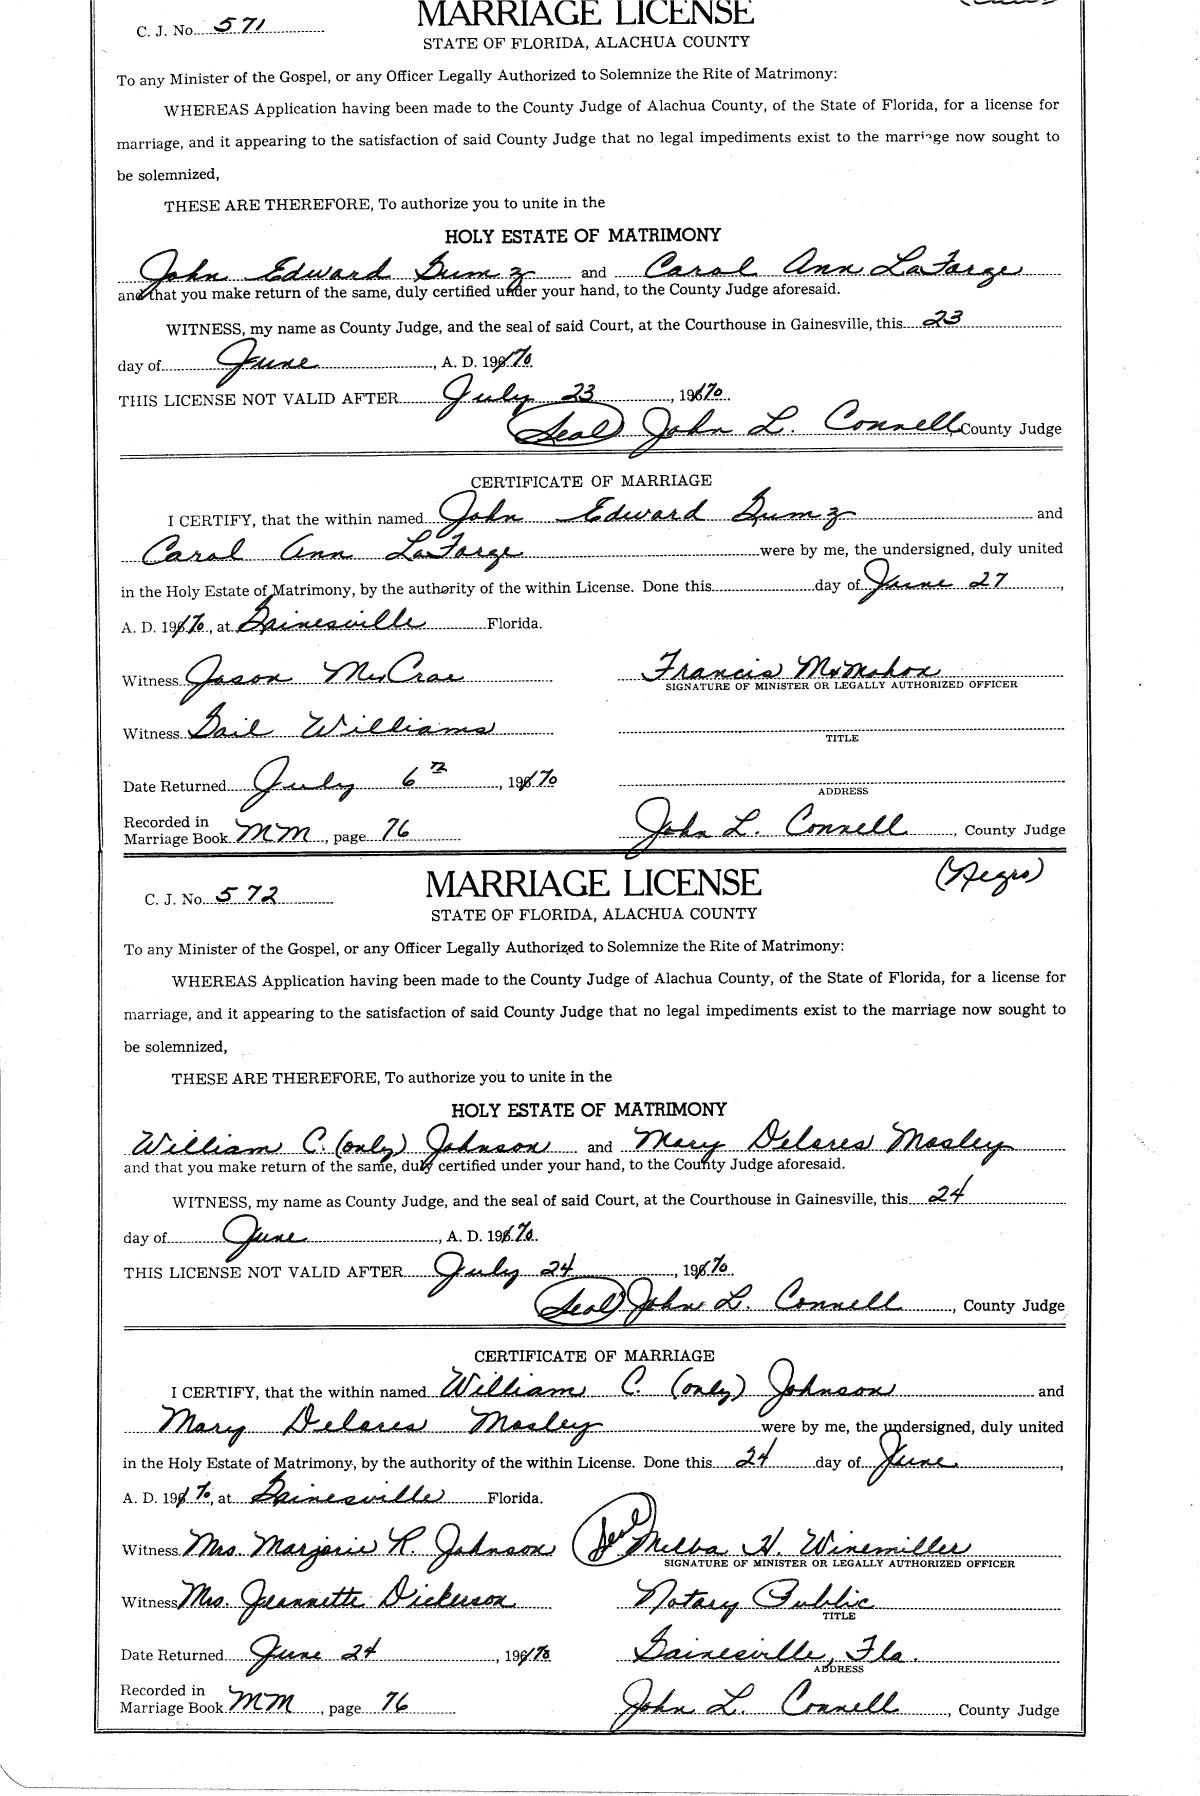 C. J. No. 571
MARRIAGE LICENSE
STATE OF FLORIDA, ALACHUA COUNTY
To any Minister of the Gospel, or any Officer Legally Authorized to Solemnize the Rite of Matrimony:
WHEREAS Application having been made to the County Judge of Alachua County, of the State of Florida, for a license for
marriage, and it appearing to the satisfaction of said County Judge that no legal impediments exist to the marriage now sought to
be solemnized,
THESE ARE THEREFORE, To authorize you to unite in the
HOLY ESTATE OF MATRIMONY
John Edward Gumz and Carol Ann LaFarge
and that you make return of the same, duly certified under your hand, to the County Judge aforesaid.
WITNESS, my name as County Judge, and the seal of said Court, at the Courthouse in Gainesville, this 23
day of June, A. D. 1970
THIS LICENSE NOT VALID AFTER July 23, 1970.
(Seal) John L. Connell, County Judge
CERTIFICATE OF MARRIAGE
I CERTIFY, that the within named John Edward Gumz and
Carol Ann LaFarge were by me, the undersigned, duly united
in the Holy Estate of Matrimony, by the authority of the within License. Done this day of June 27,
A. D. 1970, at Gainesville Florida.
Witness Jason McCrae Francis McMahon
SIGNATURE OF MINISTER OR LEGALLY AUTHORIZED OFFICER
Witness Gail Williams
TITLE
Date Returned July 6th, 1970
ADDRESS
Recorded in
Marriage Book MM, page 76 John L. Connell, County Judge
C. J. No. 572
MARRIAGE LICENSE
(Negro)
STATE OF FLORIDA, ALACHUA COUNTY
To any Minister of the Gospel, or any Officer Legally Authorized to Solemnize the Rite of Matrimony:
WHEREAS Application having been made to the County Judge of Alachua County, of the State of Florida, for a license for
marriage, and it appearing to the satisfaction of said County Judge that no legal impediments exist to the marriage now sought to
be solemnized,
THESE ARE THEREFORE, To authorize you to unite in the
HOLY ESTATE OF MATRIMONY
William C. (only) Johnson and Mary Delores Mosley
and that you make return of the same, duly certified under your hand, to the County Judge aforesaid.
WITNESS, my name as County Judge, and the seal of said Court, at the Courthouse in Gainesville, this 24
day of June, A. D. 1970.
THIS LICENSE NOT VALID AFTER July 24, 1970.
(Seal) John L. Connell, County Judge
CERTIFICATE OF MARRIAGE
I CERTIFY, that the within named William C. (only) Johnson and
Mary Delores Mosley were by me, the undersigned, duly united
in the Holy Estate of Matrimony, by the authority of the within License. Done this 24 day of June,
A. D. 1970, at Gainesville Florida.
Witness Mrs. Marjorie R. Johnson (Seal) Melba H. Winemiller
SIGNATURE OF MINISTER OR LEGALLY AUTHORIZED OFFICER
Witness Mrs. Jeannette Dickerson Notary Public
TITLE
Date Returned June 24, 1970 Gainesville, Fla.
ADDRESS
Recorded in
Marriage Book MM, page 76 John L. Connell, County Judge